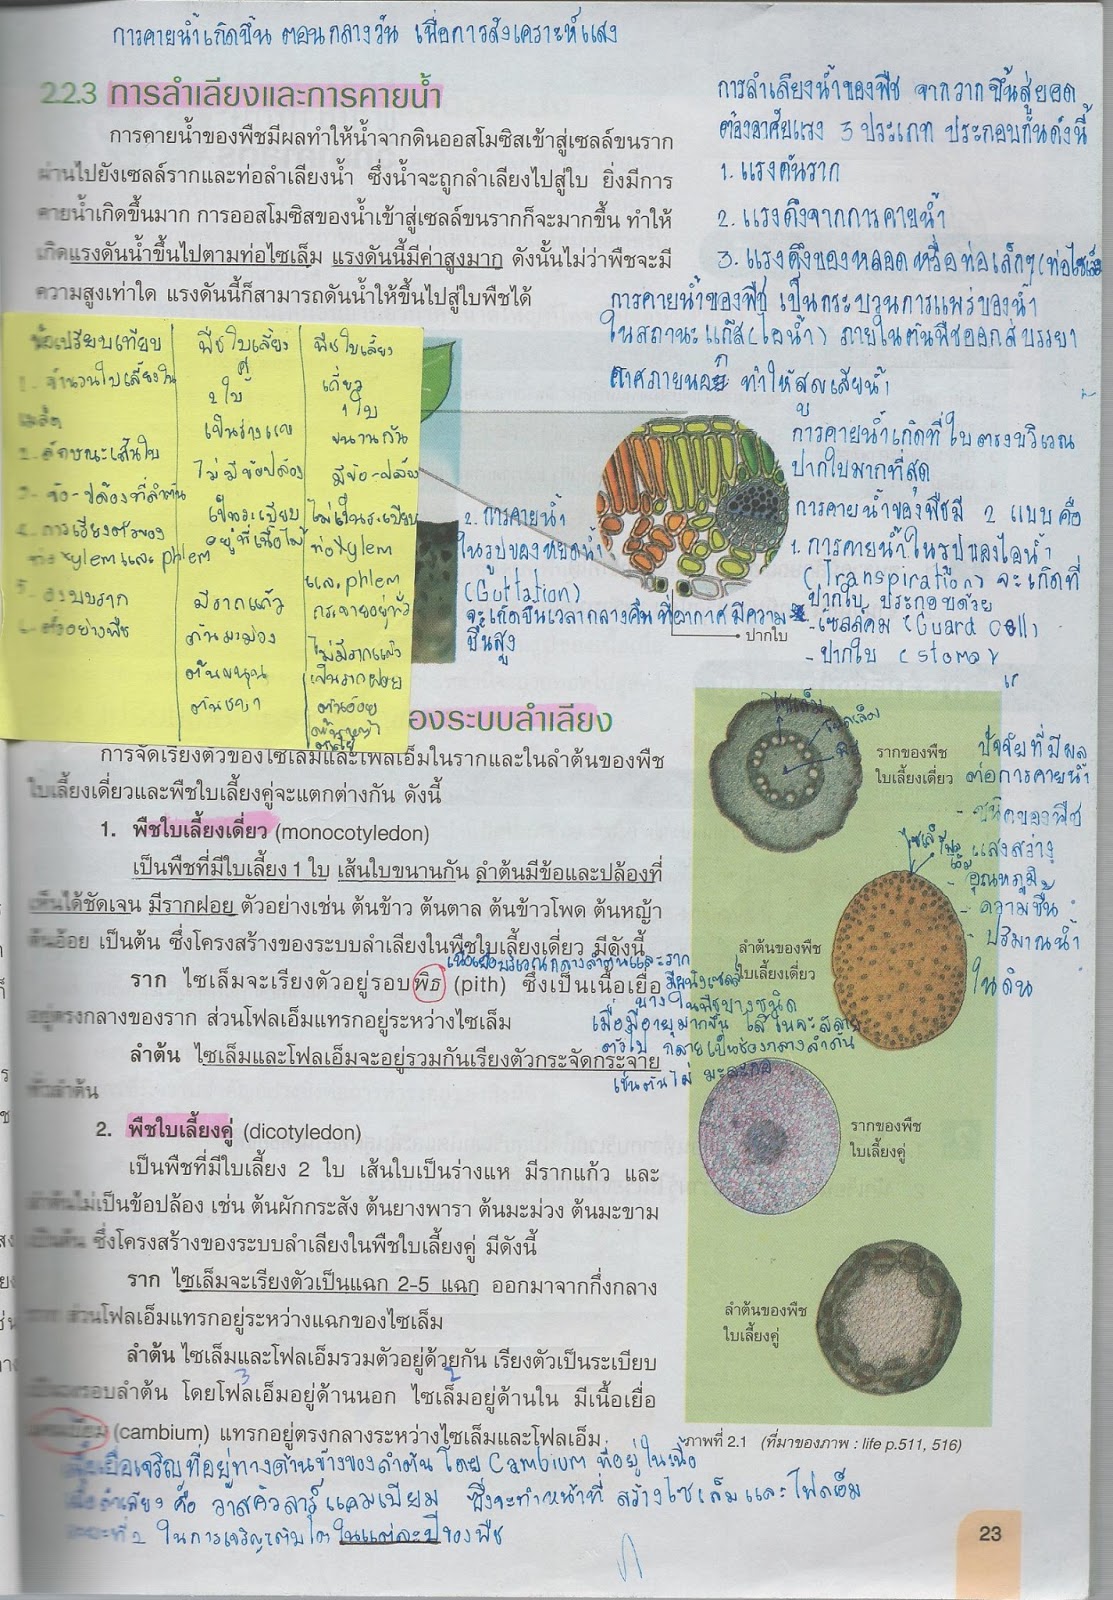 การคายน้ำเกิดขึ้น ตอนกลางวัน เพื่อการสังเคราะห์แสง
2.2.3 การลำเลียงและการคายน้ำ
การคายน้ำของพืชมีผลทำให้น้ำจากดินออสโมซิสเข้าสู่เซลล์ขนราก
ผ่านไปยังเซลล์รากและท่อลำเลียงน้ำ ซึ่งน้ำจะถูกลำเลียงไปสู่ใบ ยิ่งมีการ
คายน้ำเกิดขึ้นมาก การออสโมซิสของน้ำเข้าสู่เซลล์ขนรากก็จะมากขึ้น ทำให้
เกิดแรงดันน้ำขึ้นไปตามท่อไซเล็ม แรงดันนี้มีค่าสูงมาก ดังนั้นไม่ว่าพืชจะมี
ความสูงเท่าใด แรงดันนี้ก็สามารถดันน้ำให้ขึ้นไปสู่ใบพืชได้
การลำเลียงน้ำของพืช จากรากขึ้นสู่ยอด
ต้องอาศัยแรง 3 ประเภท ประกอบกันดังนี้
1. แรงดันราก
2. แรงดึงจากการคายน้ำ
3. แรงดึงของหลอดหรือท่อเล็กๆ (ท่อไซเล็ม
การคายน้ำของพืช เป็นกระบวนการแพร่ของน้ำ
ในสถานะแก๊ส (ไอน้ำ) ภายในต้นพืชออกสู่บรรยา
กาศภายนอก ทำให้สูญเสียน้ำ
การคายน้ำเกิดที่ใบตรงบริเวณ
ปากใบมากที่สุด
การคายน้ำของพืชมี 2 แบบคือ
1. การคายน้ำในรูปของไอน้ำ
(Transpiration) จะเกิดที่
ปากใบ ประกอบด้วย
- เซลล์คุม (Guard Cell)
- ปากใบ (stoma)
2. การคายน้ำ
ในรูปของหยดน้ำ
(Guttation)
จะเกิดขึ้นเวลากลางคืน ที่อากาศมีความ
ชื้นสูง
ปากใบ
ข้อเปรียบเทียบ พืชใบเลี้ยงคู่ พืชใบเลี้ยงเดี่ยว
1. จำนวนใบเลี้ยงในเมล็ด 2 ใบ 1 ใบ
2. ลักษณะเส้นใบ เป็นร่างแห ขนานกัน
3. ข้อ-ปล้องที่ลำต้น ไม่มีข้อปล้อง มีข้อ-ปล้อง
4. การเรียงตัวของท่อ xylem และ phlem เป็นระเบียบอยู่ที่เนื้อไม้ ไม่เป็นระเบียบ ท่อ xylem และ phlem กระจายอยู่ทั่ว
5. ระบบราก มีรากแก้ว ไม่มีรากแก้ว เป็นรากฝอย
6. ตัวอย่างพืช ต้นมะม่วง ต้นขนุน ต้นชบา ต้นอ้อย
องระบบลำเลียง
การจัดเรียงตัวของไซเล็มและโฟลเอ็มในรากและในลำต้นของพืช
ใบเลี้ยงเดี่ยวและพืชใบเลี้ยงคู่จะแตกต่างกัน ดังนี้
1. พืชใบเลี้ยงเดี่ยว (monocotyledon)
เป็นพืชที่มีใบเลี้ยง 1 ใบ เส้นใบขนานกัน ลำต้นมีข้อและปล้องที่
เห็นได้ชัดเจน มีรากฝอย ตัวอย่างเช่น ต้นข้าว ต้นตาล ต้นข้าวโพด ต้นหญ้า
ต้นอ้อย เป็นต้น ซึ่งโครงสร้างของระบบลำเลียงในพืชใบเลี้ยงเดี่ยว มีดังนี้
ราก ไซเล็มจะเรียงตัวอยู่รอบพิธ (pith) ซึ่งเป็นเนื้อเยื่อ
อยู่ตรงกลางของราก ส่วนโฟลเอ็มแทรกอยู่ระหว่างไซเล็ม
ลำต้น ไซเล็มและโฟลเอ็มจะอยู่รวมกันเรียงตัวกระจัดกระจาย
ทั่วลำต้น
เนื้อเยื่อบริเวณกลางลำต้นและราก
มีผนังเซลล์
บาง ในพืชบางชนิด
เมื่อมีอายุมากขึ้น ไส้ในจะสลาย
ตัวไป กลายเป็นช่องกลางลำต้น
เช่นต้นไผ่ มะละกอ
2. พืชใบเลี้ยงคู่ (dicotyledon)
เป็นพืชที่มีใบเลี้ยง 2 ใบ เส้นใบเป็นร่างแห มีรากแก้ว และ
ลำต้นไม่เป็นข้อปล้อง เช่น ต้นผักกระสัง ต้นยางพารา ต้นมะม่วง ต้นมะขาม
เป็นต้น ซึ่งโครงสร้างของระบบลำเลียงในพืชใบเลี้ยงคู่ มีดังนี้
ราก ไซเล็มจะเรียงตัวเป็นแฉก 2-5 แฉก ออกมาจากกึ่งกลาง
ราก ส่วนโฟลเอ็มแทรกอยู่ระหว่างแฉกของไซเล็ม
ลำต้น ไซเล็มและโฟลเอ็มรวมตัวอยู่ด้วยกัน เรียงตัวเป็นระเบียบ
เป็นวงรอบลำต้น โดยโฟลเอ็มอยู่ด้านนอก ไซเล็มอยู่ด้านใน มีเนื้อเยื่อ
แคมเบียม (cambium) แทรกอยู่ตรงกลางระหว่างไซเล็มและโฟลเอ็ม
เนื้อเยื่อเจริญที่อยู่ทางด้านข้างของลำต้น โดย Cambium ที่อยู่ในเนื้อ
เยื่อลำเลียง คือ วาสคิวลาร์แคมเบียม ซึ่งจะทำหน้าที่ สร้างไซเล็มและโฟลเอ็ม
ระยะที่ 2 ในการเจริญเติบโตในแต่ละปีของพืช
ไซเล็ม
โฟลเอ็ม
รากของพืช
ใบเลี้ยงเดี่ยว
ลำต้นของพืช
ใบเลี้ยงเดี่ยว
รากของพืช
ใบเลี้ยงคู่
ลำต้นของพืช
ใบเลี้ยงคู่
ปัจจัยที่มีผล
ต่อการคายน้ำ
- ชนิดของพืช
- แสงสว่าง
- อุณหภูมิ
- ความชื้น
- ปริมาณน้ำ
ในดิน
ภาพที่ 2.1 (ที่มาของภาพ : life p.511, 516)
23